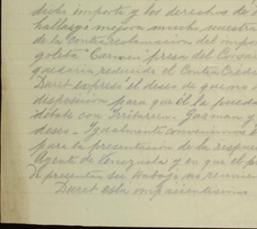 dicho importe y los derechos de
hallazgo mejora mucho nuestra
de la Contrareclamacion del impor
goleta "Carmen" presa del Corsar
quedaria reducido el Contra Credi
Duret expresó el deseo de que no
disposicion para que él la pueda
debate con Irribarren. Guzman y
deseo - Igualmente convenimos
para la presentacion de la respues
Agente de Venezuela y en que el p
de presentar su trabajo no
Duret está impacientisimo